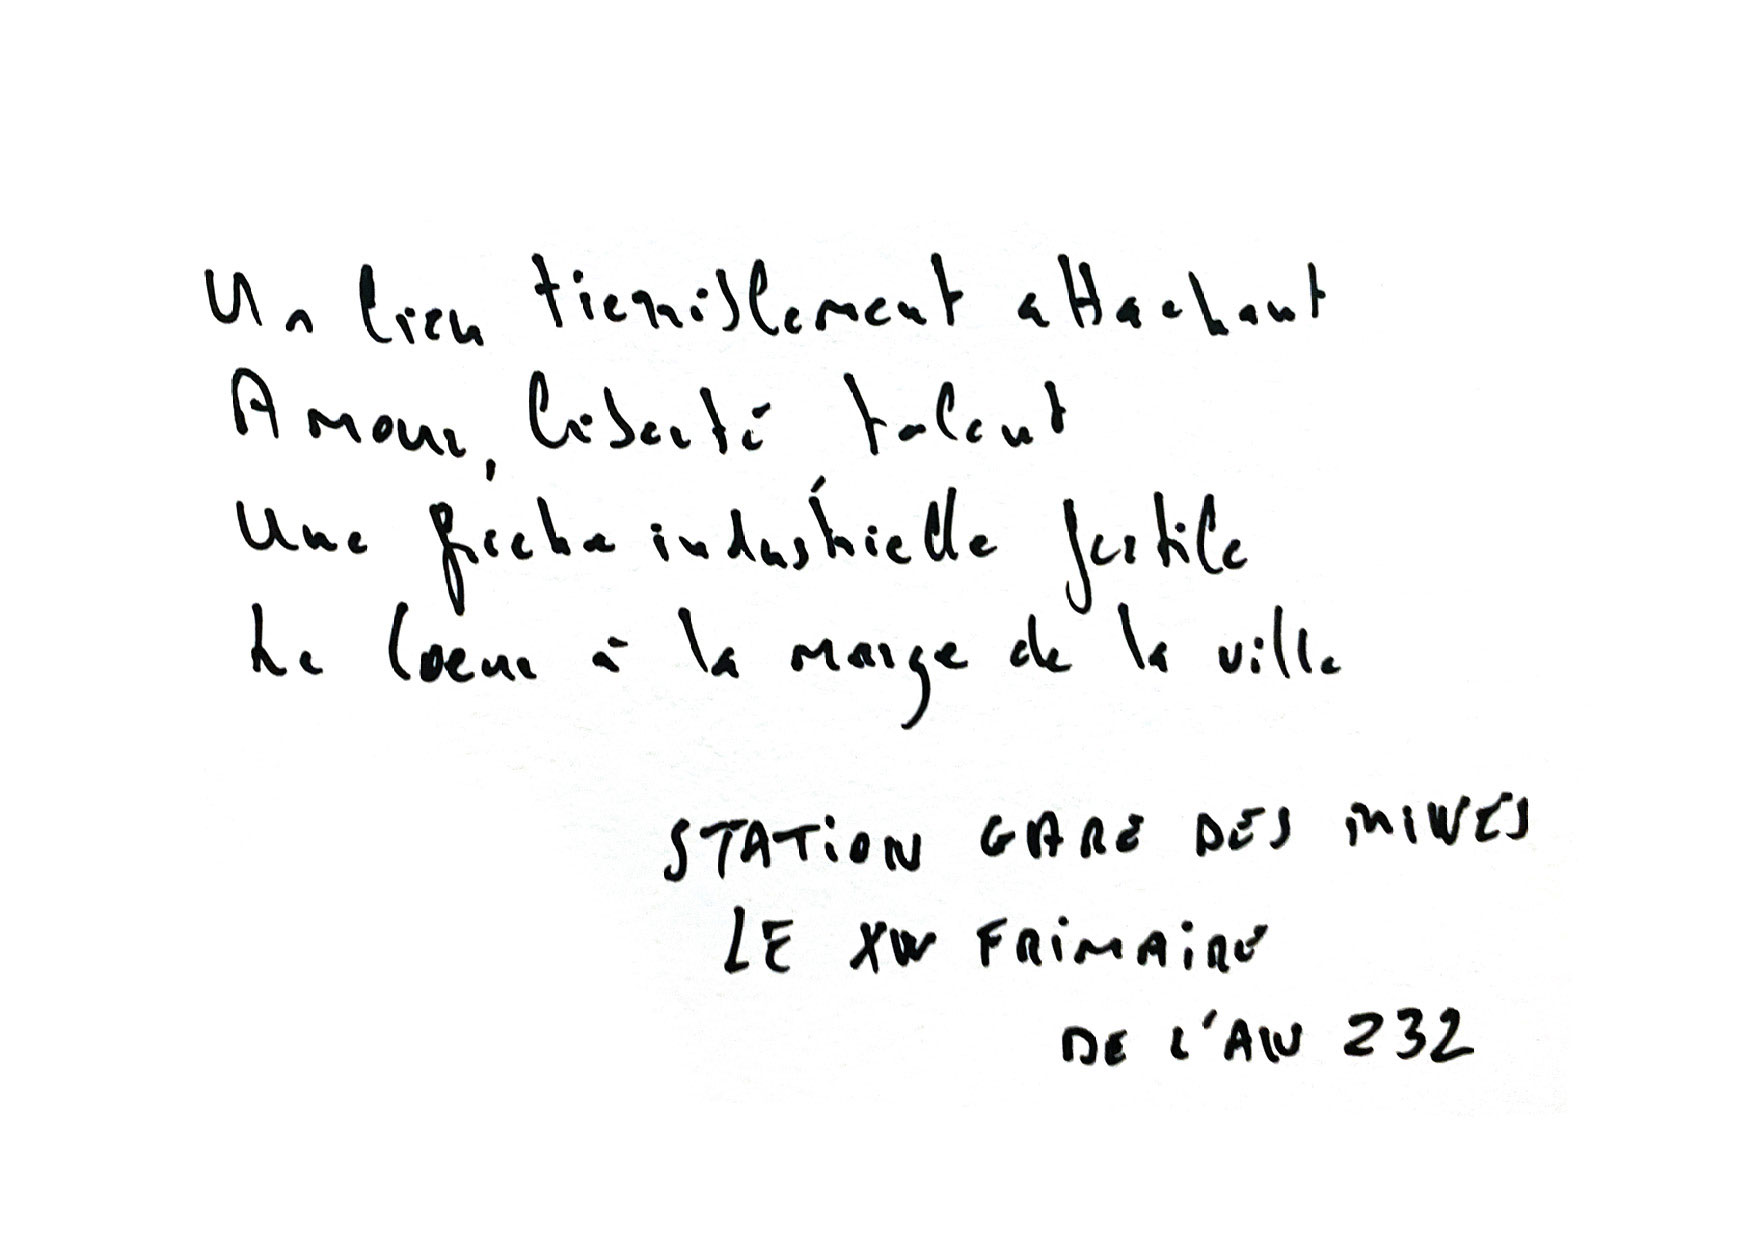 Un lieu terriblement attachant
Amour, liberté talent
Une friche industrielle fertile
Le coeur à la marge de la ville
STATION GARE DES MINES
LE XIV FRIMAIRE
DE L'AN 232